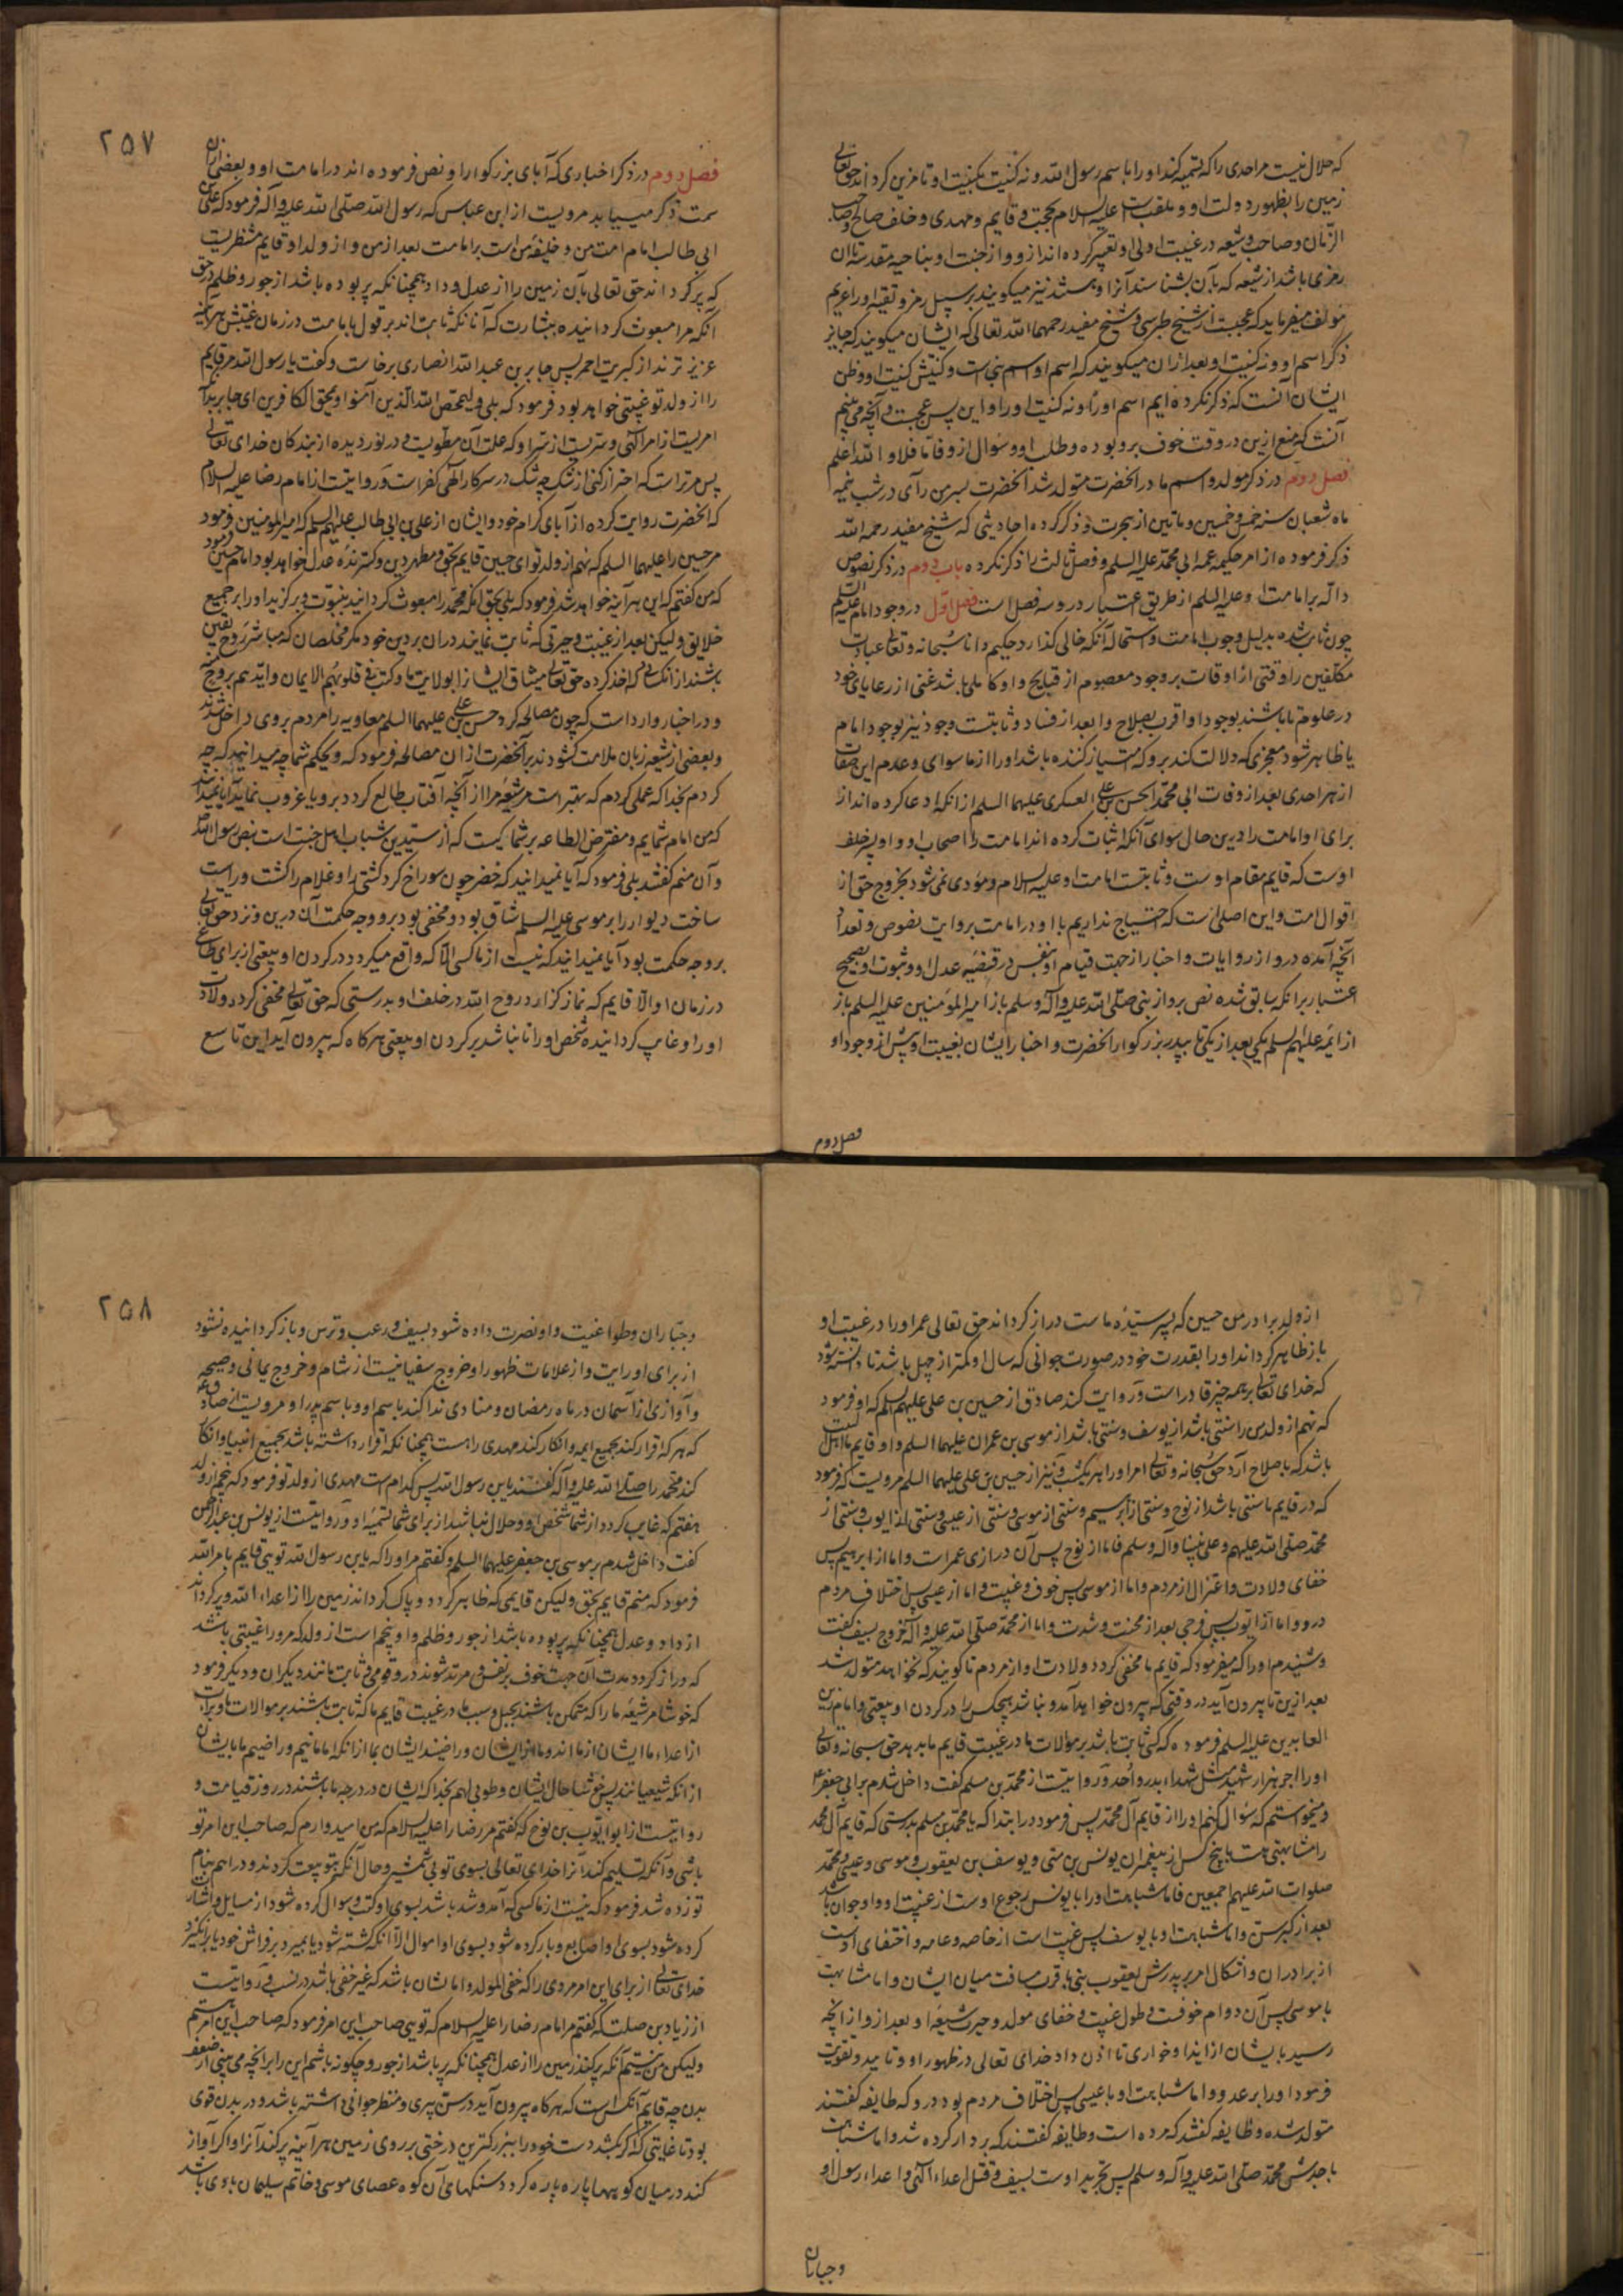 که حلال نیست مر احدی را که تسمیه کند او را باسم رسول الله و نه کنیت بکنیت او تا مزین گرداند حق تعالی
زمین را بظهور دولت او و ملقب است علیه السلام بحجت و قایم و مهدی و خلف صالح و صاحب
الزمان و صاحب و شیعه در غیبت اولی او تعبیر کرده اند ازو و از جنت او بناحیه مقدسه تا آن
رمزی باشد از شیعه که بآن بشناسند آنرا و نیز میکویند بر سبیل رمز و تقیه او را غریم
مؤلف میفرماید که عجبست از شیخ طبرسی و شیخ مفید رحمهما الله تعالی که ایشان میکویند که جایز
ذکر اسم او و نه کنیت او بعد ازان میکویند که اسم او اسم نبی است و کنیتش کنیت او و ظن
ایشان آنست که ذکر نکرده ایم اسم او را و نه کنیت او را و این پس عجبست و آنچه می بینم
آنست که منع ازین در وقت خوف برو بوده و طلب او و سؤال ازو فاما فلا و الله اعلم
فصل دوم در ذکر مولد و اسم مادر آنحضرت متولد شد آنحضرت بسر من رآی در شب نیمه
ماه شعبان سنه خمس و خمسین و ماتین از هجرت و ذکر کرده احادیثی که شیخ مفید رحمه الله
ذکر فرموده از امر حکیمه عمه ابی محمد علیه السلم و فصل ثالث را ذکر نکرده باب دوم در ذکر نصوص
داله بر امامت او علیه السلم از طریق اعتبار درو سه فصل است فصل اول در وجود امام علیه السلم
چون ثابت شده بدلیل وجوب امامت و استحاله آنکه خالی گذارد حکیم دانا سبحانه و تعالی عباد
مکلفین را وقتی از اوقات بر وجود معصوم از قبایح و او کامل باشد غنی از رعایای خود
در علوم تا باشند بوجود او اقرب بصلاح و ابعد از فساد و ثابتست وجود نیز بوجود امام
یا ظاهر شود معجزی که دلالت کند برو که امتیاز کننده باشد او را از ما سوای و عدم این صفات
از هر احدی بعد از وفات ابی محمد الحسن بن علی العسکری علیهما السلم از آنکه ادعا کرده اند از
برای او امامت را درین حال سوای آنکه اثبات کرده اند امامت را اصحاب او و او پسر خلف
اوست که قایم مقام اوست و ثابتست امامت او علیه السلام و مؤدی نمی شود بخروج حق از
اقوال امت و این اصلی است که احتیاج نداریم با او در امامت بروایت نصوص و تعداد
آنچه آمده درو از روایات و اخبار از جهت قیام او بنفس در قضیه عدل او و ثبوت او بصحیح
اعتبار برانکه سابق شده نص برو از نبی صلی الله علیه و آله وسلم باز از امیر المؤمنین علیه السلم باز
از ائمه علیهم السلم یکی بعد از یکی تا پدر بزرکوار آنحضرت و اخبار ایشان بغیبت او پیش از وجود او
فصل دوم
۲۵۷
فصل دوم در ذکر اخباری که آبای بزرکوار او نص فرموده اند در امامت او و بعضی ازان
سمت ذکر مییابد مرویست از ابن عباس که رسول الله صلی الله علیه و آله فرمود که علی
ابی طالب امام امت من و خلیفه من است بر امامت بعد از من و از ولد او قایم منتظریست
که پر گرداند حق تعالی بآن زمین را از عدل و داد همچنانکه پر بوده باشد از جور و ظلم و حق
آنکه مرا مبعوث گردانیده ببشارت که آنانکه ثابت اند بر قول بامامت در زمان غیبتش هرآینه
عزیز ترند از کبریت احمر پس جابر بن عبد الله انصاری برخاست و گفت یا رسول الله مر قایم
را از ولد تو غیبتی خواهد بود فرمود که بلی و لیمحص الله الذین آمنوا و یمحق الکافرین ای جابر بدرستی که آن
امریست از امر الهی و سریست از سر او که علت آن مطویست در نوردیده از بندگان خدای تعالی
پس مر تراست که احتراز کنی از شک چه شک در سر کار الهی کفر است و روایتست از امام رضا علیه السلام
که آنحضرت روایت کرده از آبای کرام خود و ایشان از علی بن ابی طالب علیهم السلم که امیر المؤمنین فرمود
مر حسین را علیهما السلم که نهم از ولد تو ای حسین قایم بحق و مظهر دین و گسترنده عدل خواهد بود امام حسین فرمود
که من گفتم که این هرآینه خواهد شد فرمود که بلی بحق آنکه محمد را مبعوث گردانید بنبوت و برگزید او را بر جمیع
خلایق و لیکن بعد از غیبت و حیرتی که ثابت نمایند دران بر دین خود مگر مخلصان که مباشر روح یقین
باشند از آن کسانی که اخذ کرده حق تعالی میثاق ایشانرا بولایت ما و کتب فی قلوبهم الایمان و ایدهم بروح منه
و در اخبار وارد است که چون مصالحه کرد حسن بن علی علیهما السلم معاویه را مردم بروی داخل شدند
و بعضی از شیعه زبان ملامت گشودند بر آنحضرت ازان مصالحه فرمود که ویحکم شما چه میدانید که چه
کردم بخدا که عملی کردم که بهتر است مر شیعه مرا از آنچه آفتاب طالع گردد برو یا غروب نماید آیا نمیدانید
که من امام شمایم و مفترض الطاعه بر شما کیست که از سیدین شباب اهل جنت است بنص رسول الله
و آن منم گفتند بلی فرمود که آیا نمیدانید که خضر چون سوراخ کرد کشتی را و غلام را کشت و راست
ساخت دیوار را بر موسی علیه السلم شاق بود و مخفی بود برو وجه حکمت آن درین و نزد حق تعالی
بر وجه حکمت بود آیا نمیدانید که نیست از ما کسی الا که واقع میگردد در گردن او بیعتی از برای طاغی
در زمان او الا قایم که نماز گزارد روح الله در خلف او بدرستی که حق تعالی مخفی گرد ولادت
او را و غایب گردانیده شخص او را تا نباشد بر گردن او بیعتی هرگاه که بیرون آید این تاسع
از ولد برادر من حسین که پسر سیده ماست دراز گرداند حق تعالی عمر او را در غیبت او
باز ظاهر گرداند او را بقدرت خود در صورت جوانی که سال او کمتر از چهل باشد تا دانسته شود
که خدای تعالی بر همه چیز قادر است و روایت کند صادق از حسین بن علی علیهم السلم که او فرمود
که نهم از ولد من را سنتی باشد از یوسف و سنتی باشد از موسی بن عمران علیهما السلم و او قایم ما اهل بیت
باشد که باصلاح آرد حق سبحانه و تعالی امر او را بیکشب و نیز از حسین بن علی علیهما السلم مرویست که فرمود
که در قایم ما سنتی باشد از نوح و سنتی از ابرهیم و سنتی از موسی و سنتی از عیسی و سنتی از ایوب و سنتی از
محمد صلی الله علیهم و علی نبینا و آله وسلم فاما از نوح پس آن درازی عمر است و اما از ابرهیم پس
خفای ولادت و اعتزال از مردم و اما از موسی پس خوف و غیبت و اما از عیسی پس اختلاف مردم
درو و اما از ایوب پس فرجی بعد از محنت و شدت و اما از محمد صلی الله علیه و آله خروج بسیف گفت
و شنیدم او را که میفرمود که قایم ما مخفی گردد ولادت او از مردم تا گویند که نخواهد متولد شد
بعد ازین تا بیرون آید در وقتی که بیرون خواهد آمد و نباشد هیچکس را در گردن او بیعتی و امام زین
العابدین علیه السلم فرموده که کسی ثابت باشد بر موالات ما در غیبت قایم ما بدهد حق سبحانه و تعالی
او را اجر هزار شهید مثل شهداء بدر و احد و روایتست از محمد بن مسلم گفت داخل شدم بر ابی جعفر
و میخواستم که سؤال کنم او را از قایم آل محمد پس فرمود در ابتدا که یا محمد بن مسلم بدرستی که قایم آل محمد
را مشابهتی هست با پنج کس از پیغمبران یونس بن متی و یوسف بن یعقوب و موسی و عیسی و محمد
صلوات الله علیهم اجمعین فاما مشابهت او را با یونس رجوع اوست از غیبت او و او جوان باشد
بعد از کبر سن و اما مشابهت او با یوسف پس غیبت است از خاصه و عامه و اختفای اوست
از برادران و اشکال امر بر پدرش یعقوب نبی با قرب مسافت میان ایشان و اما مشابهت
با موسی پس آن دوام خوفست و طول غیبت و خفای مولد و حیرت شیعه او بعد ازو از آنچه
رسید بایشان از ایذا و خواری تا اذن داد خدای تعالی در ظهور او و تایید و تقویت
فرمود او را بر عدو و اما مشابهت او با عیسی پس اختلاف مردم بود درو که طایفه گفتند
متولد شده و طایفه گفتند که مرده است و طایفه گفتند که بر دار کرده شد و اما مشابهت
با جدش محمد صلی الله علیه و آله وسلم پس تجرید اوست بسیف و قتل اعداء الهی و اعداء رسول او
و جباران
۲۵۸
و جباران و طواغیت و او نصرت داده شود بسیف و رعب و ترس و باز گردانیده نشود
از برای او رایت و از علامات ظهور او خروج سفیانیست از شام و خروج یمانی و صیحه
و آوازی از آسمان در ماه رمضان و منادی ندا کند باسم او و باسم پدر او و مرویست از صادق
که هر که اقرار کند بجمیع ایمه و انکار کند مهدی را هست همچنانکه اقرار داشته باشد بجمیع انبیا و انکار
کند محمد را صلی الله علیه و آله گفتند یابن رسول الله پس کدام است مهدی از ولد تو فرمود که پنجم از ولد
هفتم که غایب گردد از شما شخص او و حلال نباشد از برای شما تسمیه او و روایتست از یونس بن عبد الرحمن
گفت داخل شدم بر موسی بن جعفر علیهما السلم و گفتم مر او را که یابن رسول الله تویی قایم بامر الله
فرمود که منم قایم بحق و لیکن قایمی که ظاهر گردد و پاک گرداند زمین را از اعداء الله و پر گرداند
از داد و عدل همچنانکه پر بوده باشد از جور و ظلم و او پنجم است از ولد که مر او را غیبتی باشد
که دراز گردد مدت آن جهت خوف بر نفس و مرتد شوند درو قومی و ثابت مانند دیگران و دیگر فرمود
که خوشا مر شیعه ما را که متمکن باشند بحبل و سبب ما در غیبت قایم ما که ثابت باشند بر موالات ما و برائت
از اعداء ما ایشان از ما اند و ما از ایشان و راضیند ایشان بما از آنکه امامانیم و راضییم ما بایشان
از آنکه شیعیانند پس خوشا حال ایشان و طوبی لهم بخدا که ایشان در درجه ما باشند در روز قیامت و
روایتست از ابو ایوب بن نوح که گفتم مر رضا را علیه السلام که من امیدوارم که صاحب این امر تو
باشی و آنکه تسلیم کند آنرا خدای تعالی بسوی تو بی شمشیر و حال آنکه بتو بیعت کردند و دراهم بنام
تو زده شد فرمود که نیست از ما کسی که آمد و شد باشد بسوی او کتب و سوال کرده شود از مسایل و اشارت
کرده شود بسوی او اصابع و بار کرده شود بسوی او اموال الا آنکه کشته شود یا بمیرد بر فراش خود تا برانگیزد
خدای تعالی از برای این امر مردی را که خفی المولد و المنشا باشد که غیر خفی باشد در نسب و روایتست
از زیاد بن صلت که گفتم مر امام رضا را علیه السلام که تویی صاحب این امر فرمود که صاحب این امر هستم
ولیکن من نیستم آنکه پر کند زمین را از عدل همچنانکه پر باشد از جور و چگونه باشم این را بر آنچه می بینی از ضعف
بدن چه قایم آنکس است که هرگاه بیرون آید در سن پیری و منظر جوانی داشته باشد و در بدن قوی
بود تا غایتی که اگر کشد دست خود را ببزرگترین درختی بر روی زمین هرآینه بر کند آنرا و اگر آواز
کند در میان کوهها پاره پاره گردد سنگهای آن کوه عصای موسی و خاتم سلیمان با وی باشد